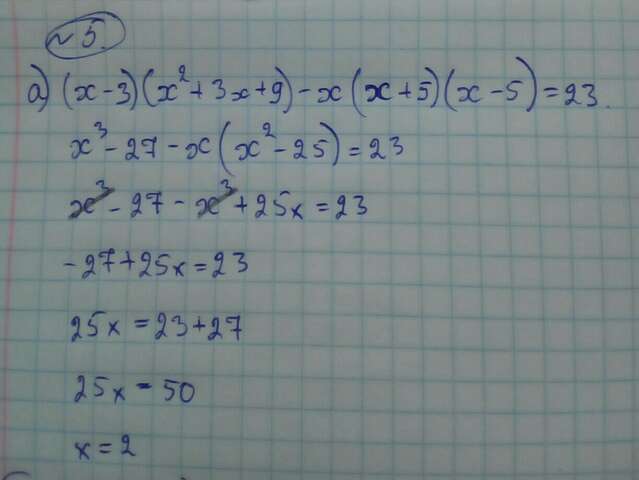 №5.
а) (x-3)(x²+3x+9)-x(x+5)(x-5)=23.
x³-27-x(x²-25)=23
x³-27-x³+25x=23
-27+25x=23
25x=23+27
25x=50
x=2